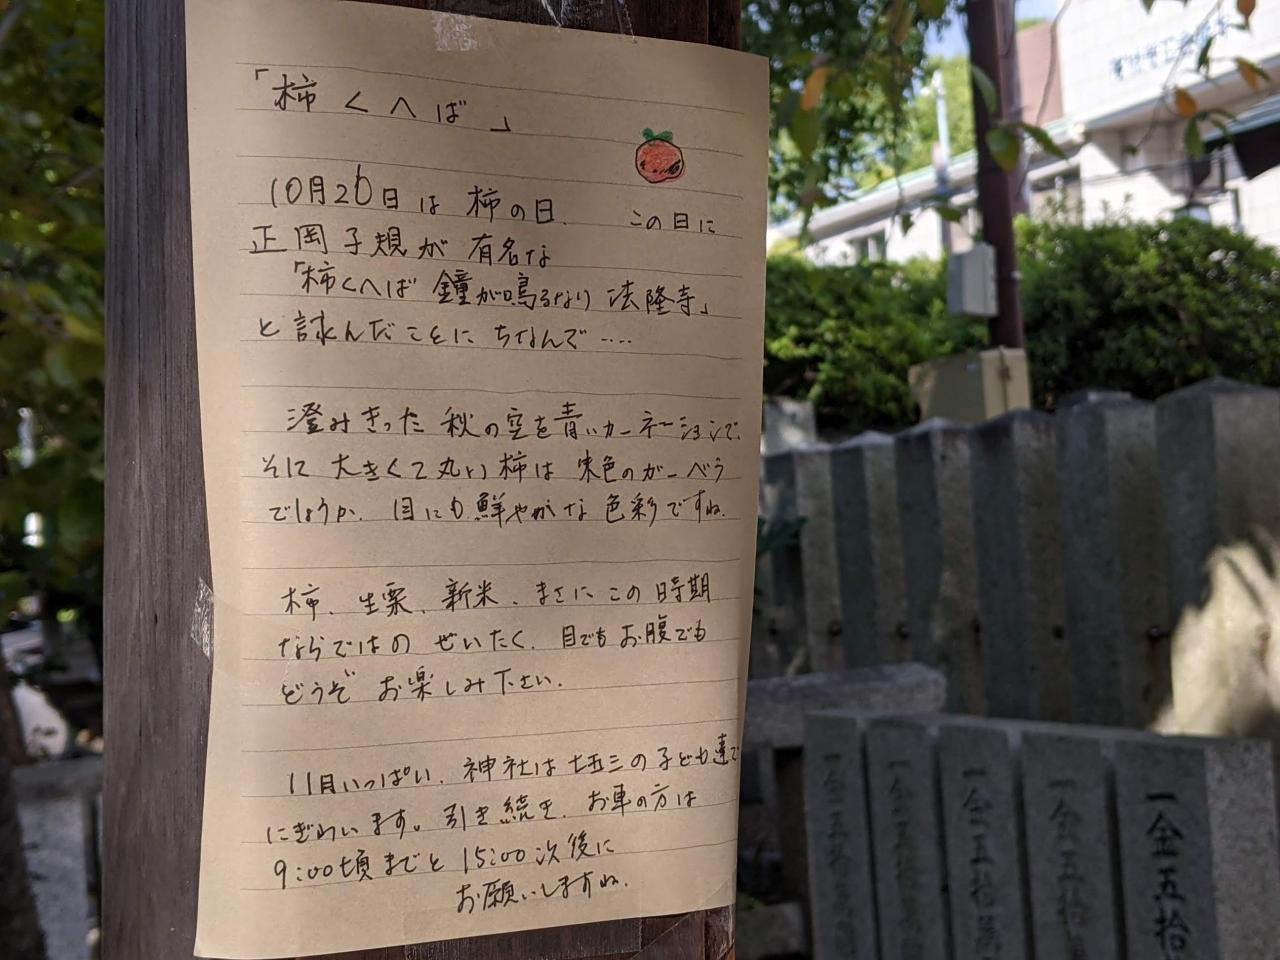 「柿くへば」
10月26日は柿の日. この日に
正岡子規が有名な
「柿くへば 鐘が鳴るなり 法隆寺」
と詠んだことにちなんで‥‥
澄みきった秋の空を青いカーネーションで、
そに大きくて丸い柿は朱色のガーベラ
でしょうか. 目にも鮮やかな色彩ですね.
柿、生栗、新米、まさにこの時期
ならではのぜいたく. 目でもお腹でも
どうぞお楽しみ下さい.
11月いっぱい. 神社は七五三の子ども達で
にぎわいます。引き続き、お車の方は
9:00頃までと15:00次後に
お願いしますね.
一金五拾
一金五拾萬
一金五拾萬
一金五拾萬
一金五拾萬